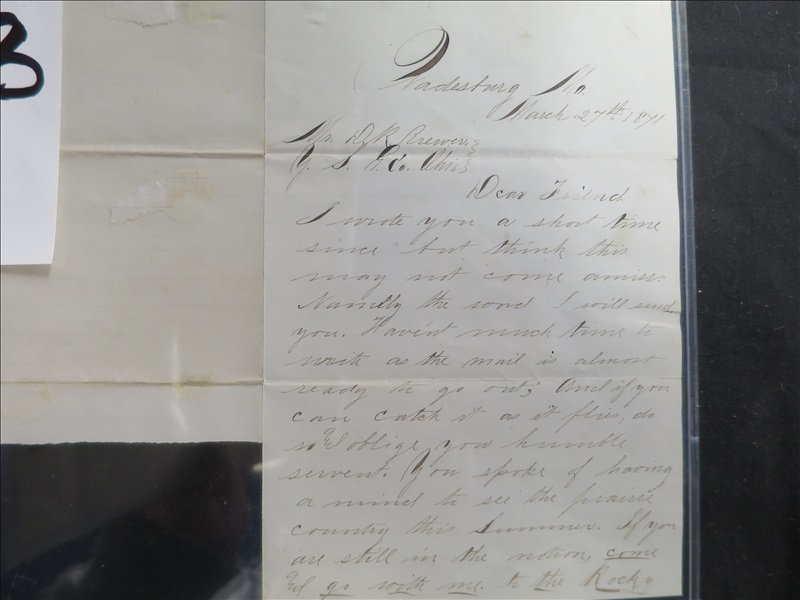 Wadesburg Mo.
March 27th 1871
Mr. D. R. Brewer,
G. S. P. Co. Ohio
Dear Friend
I wrote you a short time
since but think this
may not come amiss.
Namelly the word I will send
you. Haven't much time to
write as the mail is almost
ready to go out; And if you
can catch it as it flies, do
so & oblige your humble
servent. You spoke of having
a mind to see the prairie
country this Summer. If you
are still in the notion, come
& go with me to the Rocky